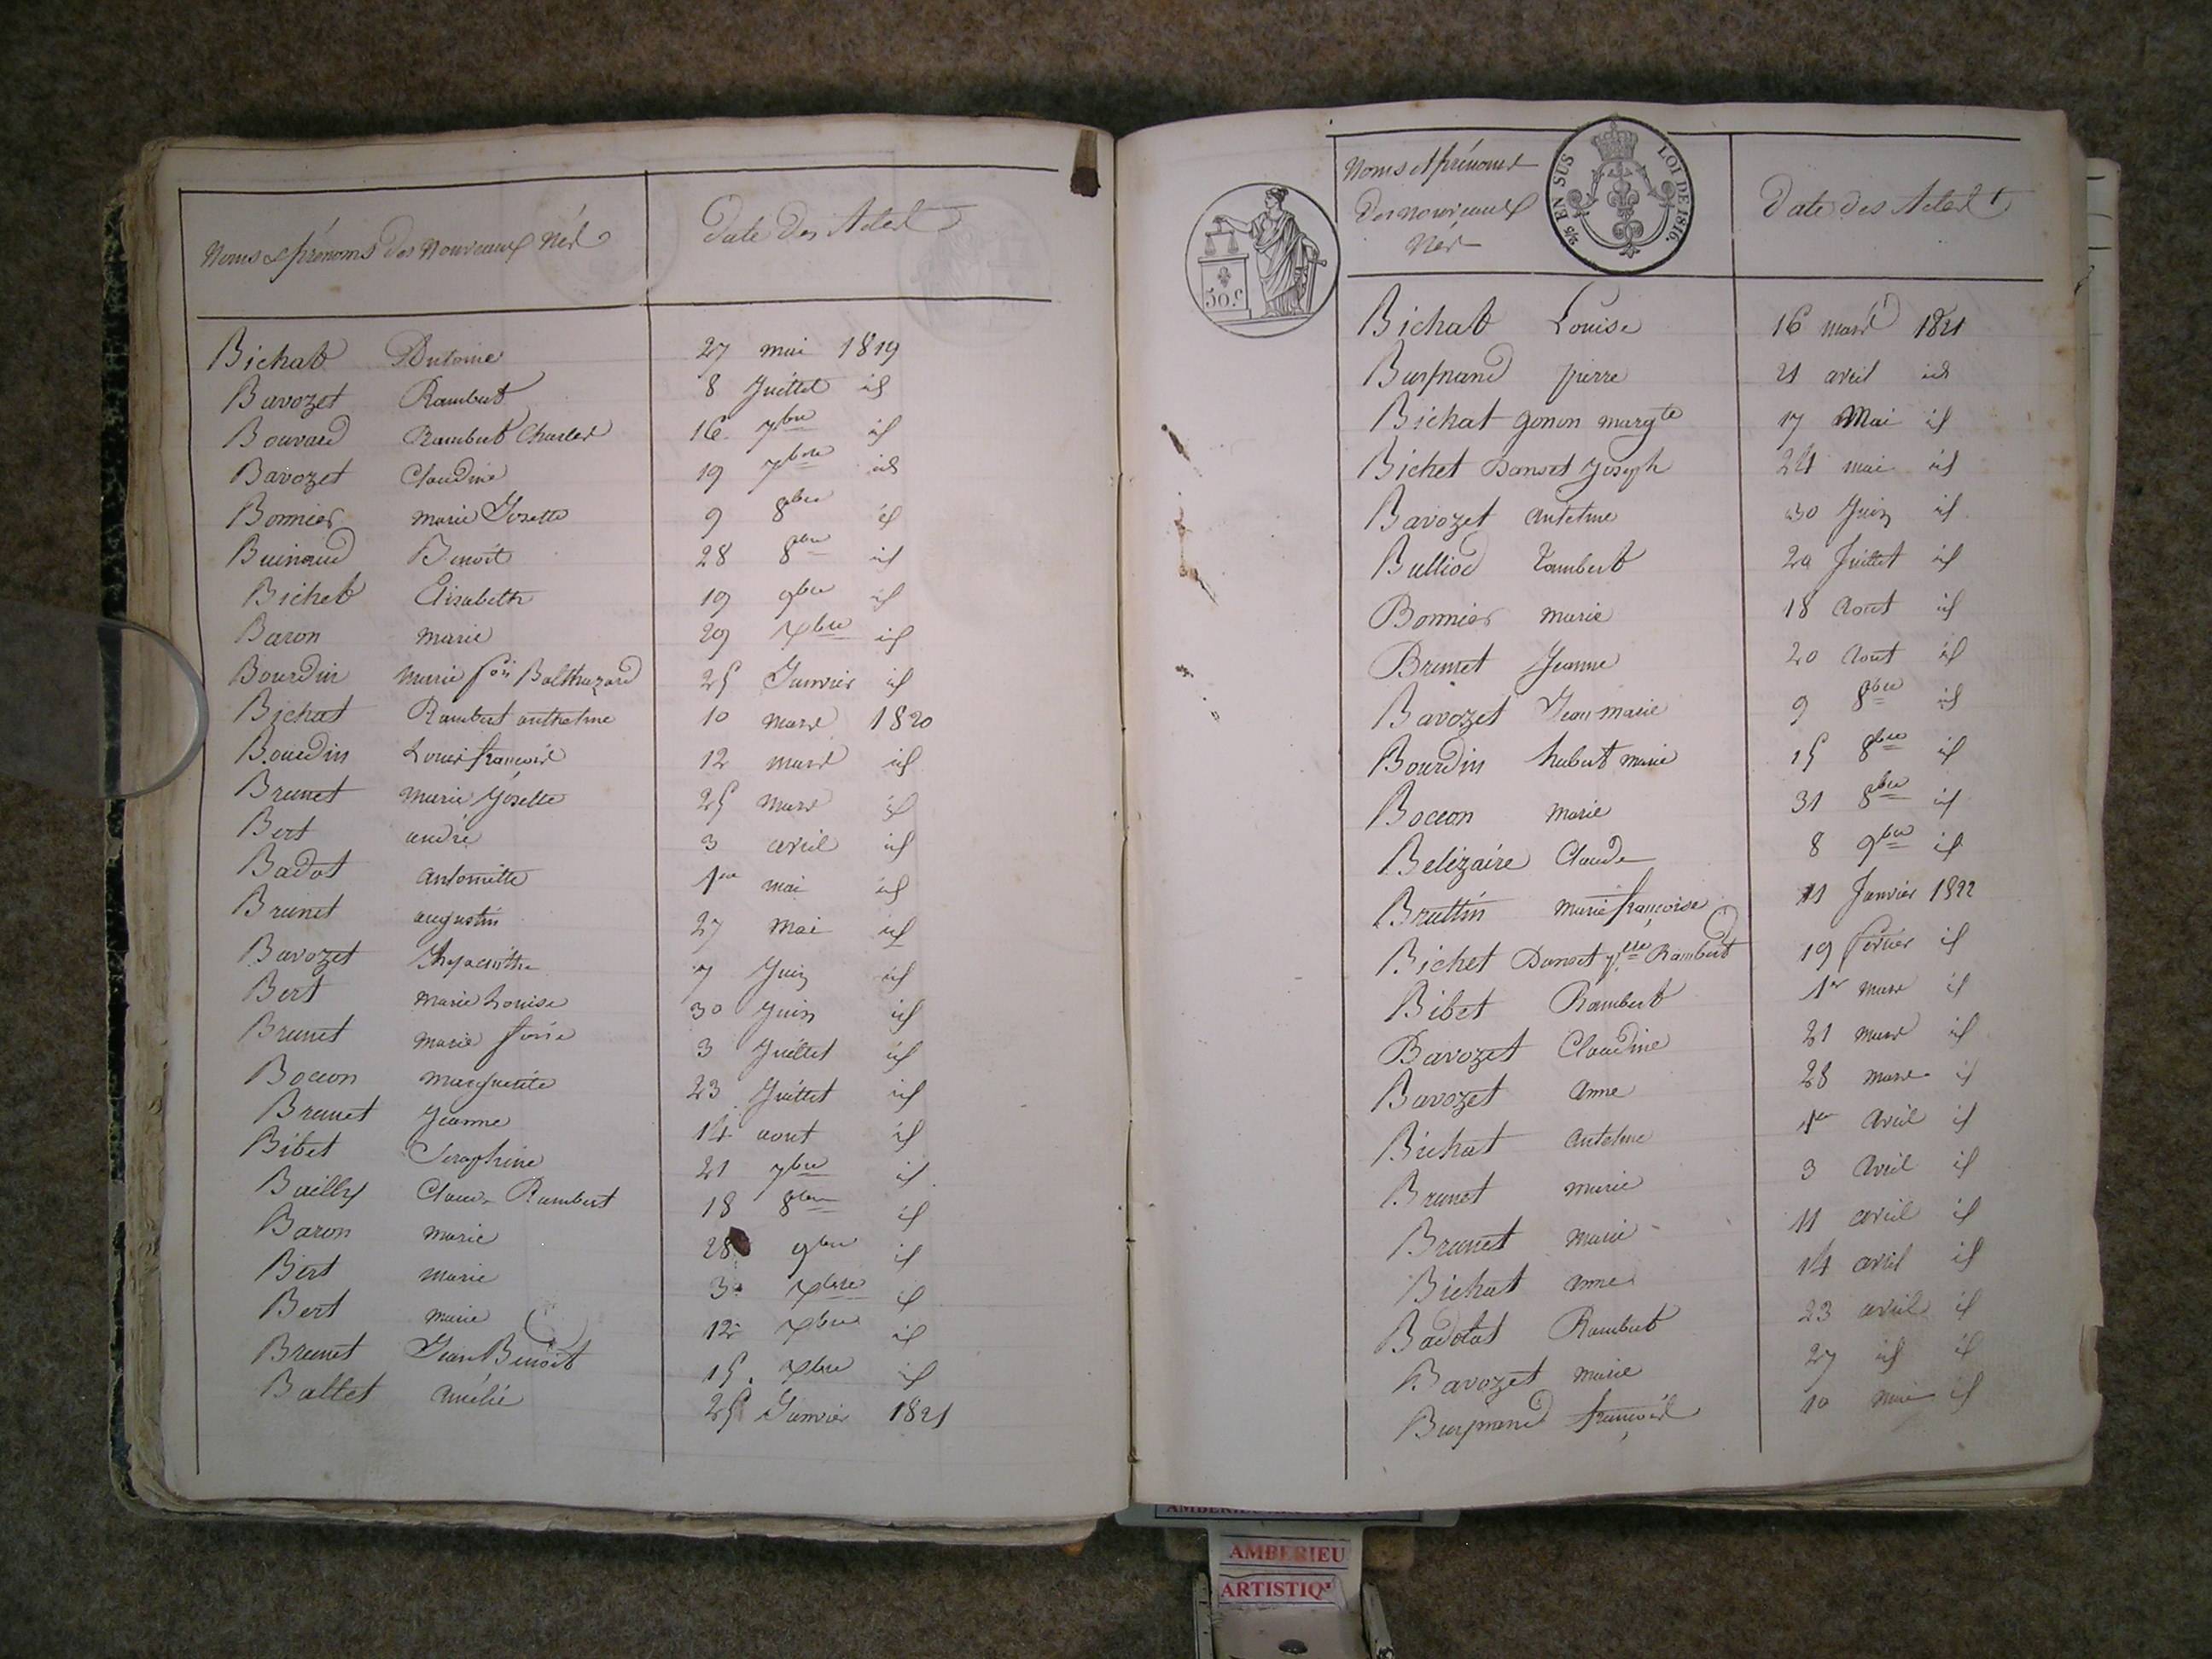 Noms et prénoms des Nouveaux Nés
Date des Actes
Bichat Antoine 27 mai 1819
Bavozet Rambert 8 Juillet id
Bouvard Rambert Charles 16 7bre id
Bavozet Claudine 19 7bre id
Bonnier marie Josette 9 8bre id
Buinaud Benoit 28 8bre id
Bichet Elisabeth 19 9bre id
Baron marie 29 Xbre id
Bourdin marie fois Balthazard 25 Janvier id
Bichat Rambert anthelme 10 mars 1820
Bourdin Louis françois 12 mars id
Brunet marie Josette 25 mars id
Bert andré 3 avril id
Badot antoinette 1er mai id
Brunet augustin 27 mai id
Bavozet Hyacinthe 7 Juin id
Bert marie Louise 30 Juin id
Brunet marie 3 Juillet id
Boccon marguerite 23 Juillet id
Brunet Jeanne 14 aout id
Bibet Seraphine 21 7bre id
Bailly Claude Rambert 18 8bre id
Baron marie 28 9bre id
Bert marie 3 Xbre id
Bert marie 12 Xbre id
Brunet Jean Benoit 15 Xbre id
Baltet amélie 25 Janvier 1821
Noms et prénoms
Des nouveaux
Nés
Date des Actes
5/5 EN SUS LOI DE 1816.
50.c
Bichat Louise 16 mars 1821
pierre 21 avril id
Bichat gonon margte 17 Mai id
Bichet Danset Joseph 24 mai id
Bavozet antelme 30 Juin id
Balliod Rambert 29 Juillet id
Bonnier marie 18 aout id
Brunet Jeanne 20 aout id
Bavozet Jean marie 9 8bre id
Bourdin hubert marie 15 8bre id
Boccon marie 31 8bre id
Belizaire Claude 8 9bre id
Bruttin marie françoise 11 Janvier 1822
Bichet Danset Rambert 19 fevrier id
Bibet Rambert 1er mars id
Bavozet Claudine 21 mars id
Bavozet anne 28 mars id
Bichat antelme 1er avril id
Brunet marie 3 avril id
Brunet marie 11 avril id
Bichat anne 14 avril id
Badolat Rambert 23 avril id
Bavozet marie 27 id id
françois 10 mai id
AMBERIEU
ARTISTIQ